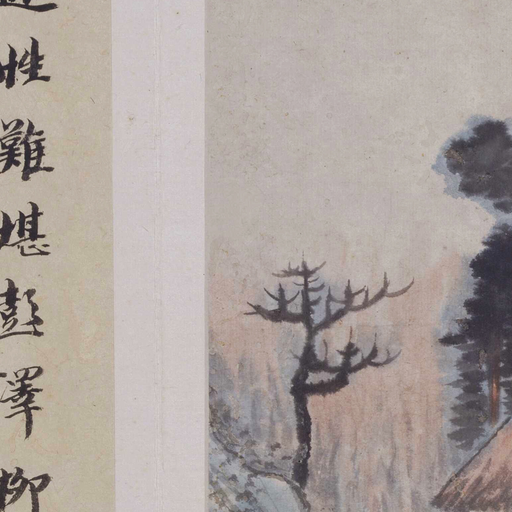 性難堪彭澤柳